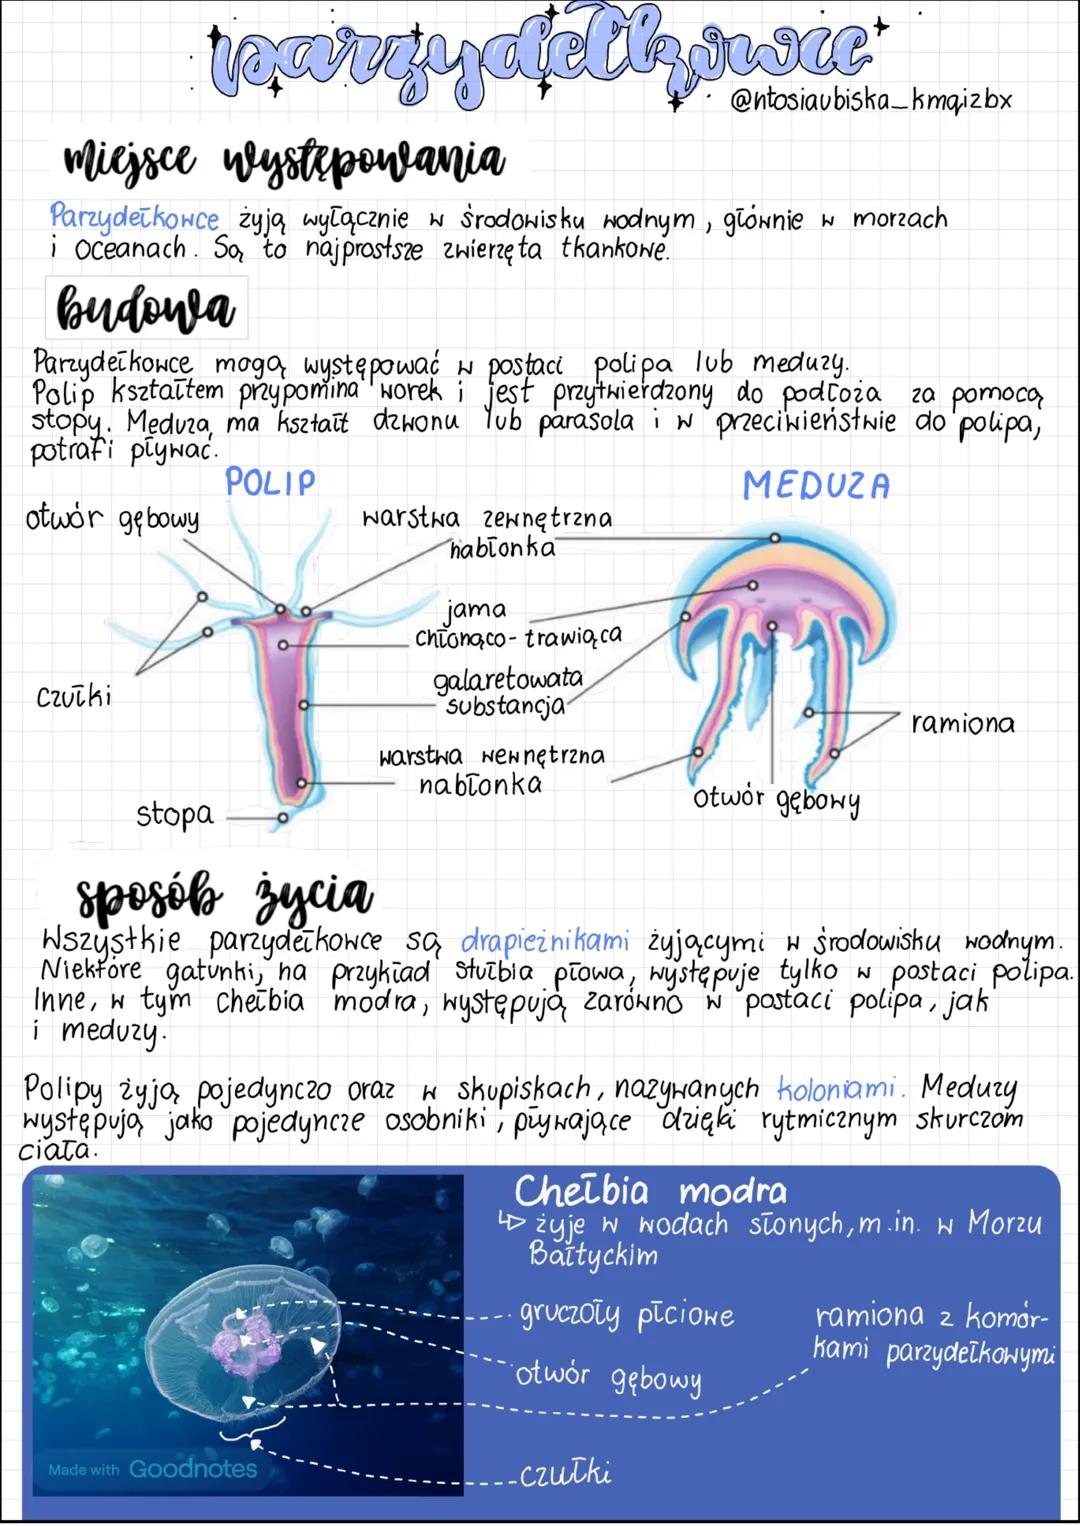 parzydełkowce
@ntosiaubiska_kmqizbx
miejsce występowania
Parzydełkowce żyją wyłącznie w środowisku wodnym, głównie w morzach
i oceanach. Są to najprostsze zwierzęta tkankowe.
budowa
Parzydełkowce mogą występować w postaci polipa lub meduzy.
Polip kształtem przypomina worek i jest przytwierdzony do podłoża za pomocą
stopy. Meduza ma kształt dzwonu lub parasola i w przeciwieństwie do polipa,
potrafi pływać.
POLIP
MEDUZA
otwór gębowy
warstwa zewnętrzna
nabłonka
jama
chłonąco-trawiąca
galaretowata
substancja
czułki
ramiona
warstwa wewnętrzna
nabłonka
otwór gębowy
stopa
sposób życia
Wszystkie parzydełkowce są drapieżnikami żyjącymi w środowisku wodnym.
Niektóre gatunki, na przykład stułbia płowa, występuje tylko w postaci polipa.
Inne, w tym chełbia modra, występują zarówno w postaci polipa, jak
i meduzy.
Polipy żyją pojedynczo oraz w skupiskach, nazywanych koloniami. Meduzy
występują jako pojedyncze osobniki, pływające dzięki rytmicznym skurczom
ciała.
Chełbia modra
↳ żyje w wodach słonych, m.in. w Morzu
Bałtyckim
gruczoły płciowe
ramiona z komór-
kami parzydełkowymi
otwór gębowy
czułki
Made with Goodnotes